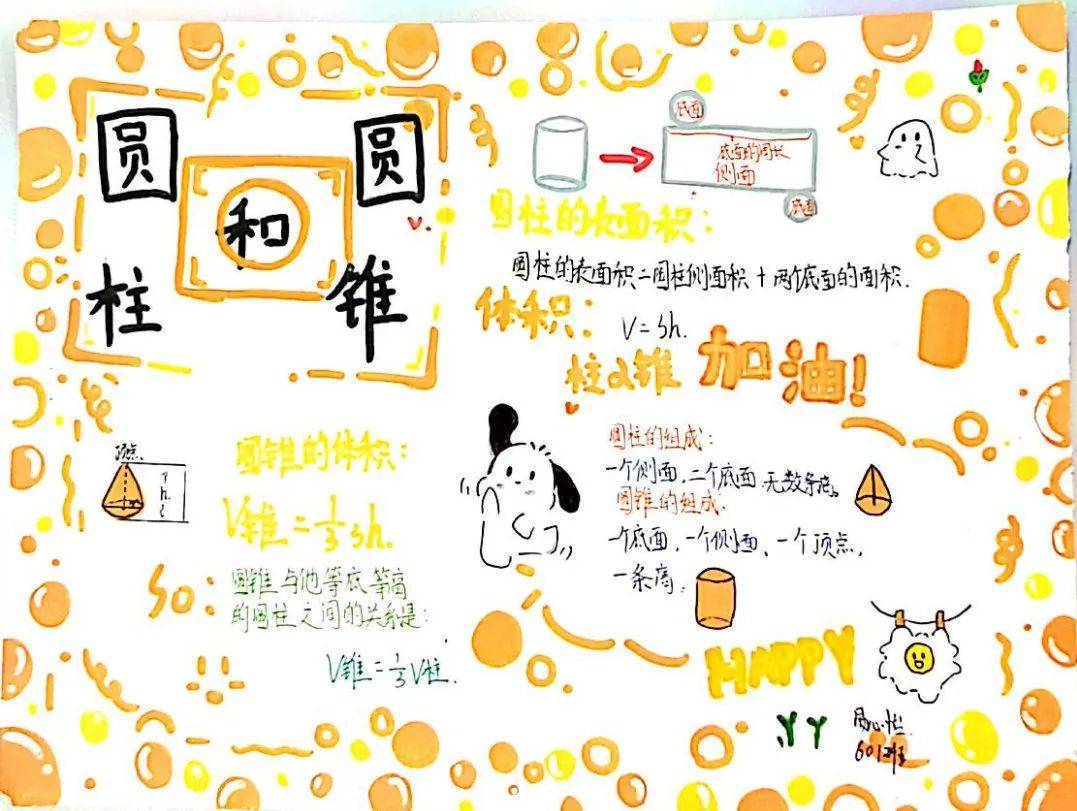 圆柱
和
圆锥
底面
底面的周长
侧面
底面
圆柱的表面积：
圆柱的表面积=圆柱侧面积+两个底面的面积.
体积：
V=sh.
柱&锥 加油!
顶点
h
圆锥的体积：
V锥=1/3sh.
SO:
圆锥与他等底等高
的圆柱之间的关系是:
V锥=1/3V柱.
圆柱的组成:
一个侧面,二个底面,无数条高。
圆锥的组成.
一个底面,一个侧面、一个顶点,
一条高.
HAPPY
601班